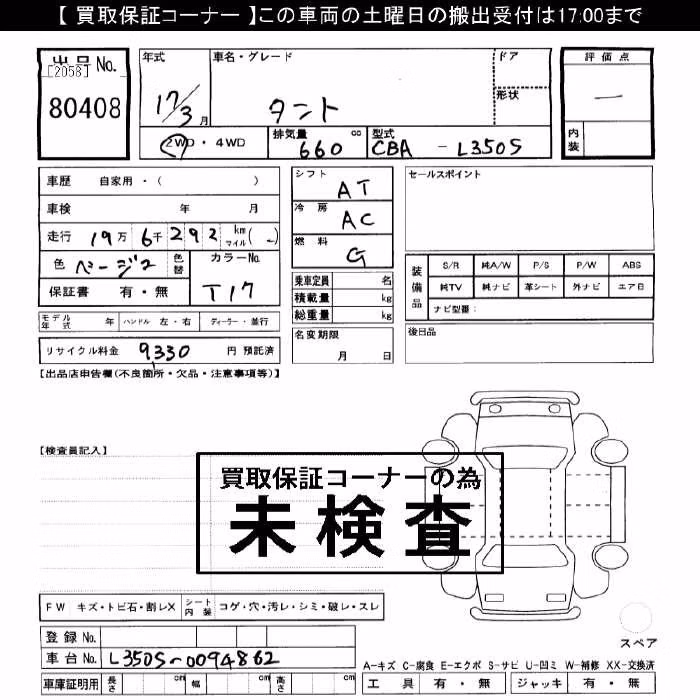 【 買取保証コーナー 】この車両の土曜日の搬出受付は17:00まで
出品No.
[2058]
80408
年式
17/3 月
車名・グレード
タント
ドア
形状
評価点
—
内装
2WD・4WD
排気量 660 cc
型式 CBA - L350S
車歴 自家用・( )
車検 年 月
走行 19万 6千 2 9 2 km マイル ( - )
色 ベージュ 色替
カラーNo. T17
保証書 有・無
モデル年式 年 ハンドル 左・右 ディーラー・並行
リサイクル料金 9330 円 預託済
シフト AT
冷房 AC
燃料 G
乗車定員 名
積載量 kg
総重量 kg
名変期限
月 日
セールスポイント
装備品
S/R 純A/W P/S P/W ABS
純TV 純ナビ 革シート 外ナビ エアB
ナビ型番:
後日品
【出品店申告欄(不良箇所・欠品・注意事項等)】
【検査員記入】
買取保証コーナーの為
未検査
FW キズ・トビ石・割レX
シート内装 コゲ・穴・汚レ・シミ・破レ・スレ
登録No.
車台No. L350S-0094862
車庫証明用 長さ cm 幅 cm 高さ cm
スペア
A-キズ C-腐食 E-エクボ S-サビ U-凹ミ W-補修 XX-交換済
工具 有・無 ジャッキ 有・無